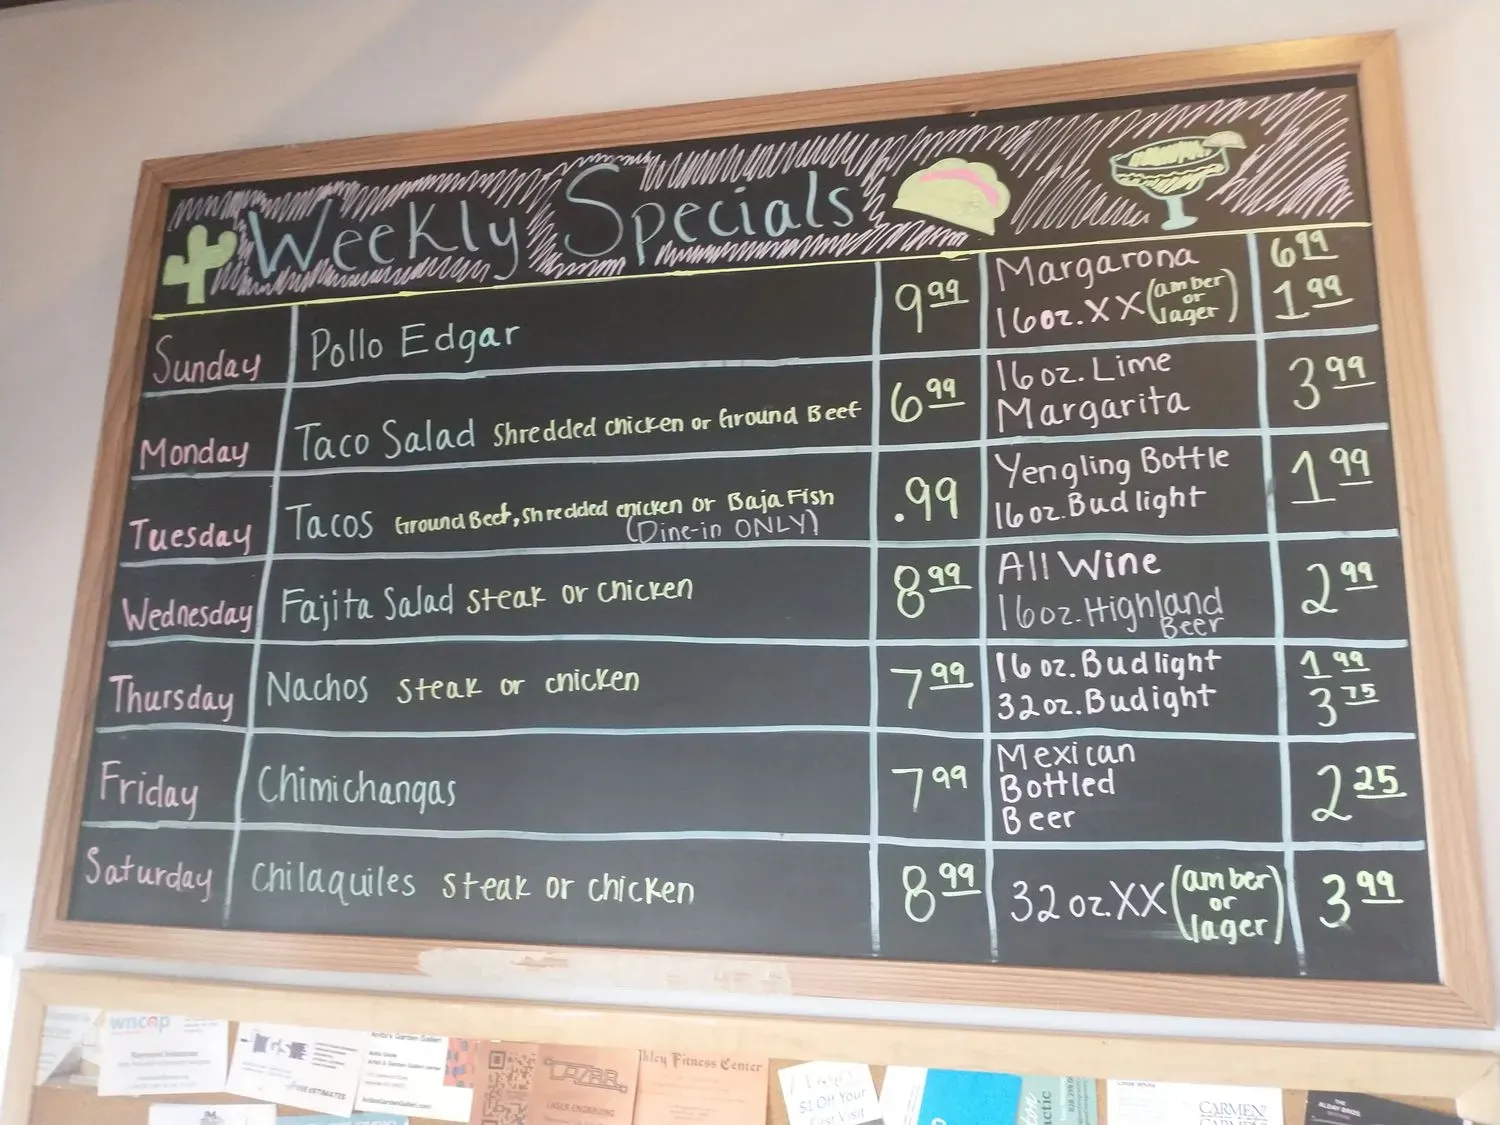 Weekly Specials
Sunday Pollo Edgar 9.99 Margarona 6.99
16oz. XX (amber or lager) 1.99
Monday Taco Salad Shredded chicken or Ground Beef 6.99 16oz. Lime Margarita 3.99
Tuesday Tacos Ground Beef, shredded chicken or Baja Fish .99 Yengling Bottle 1.99
(Dine-in ONLY) 16oz. Bud light
Wednesday Fajita Salad Steak or chicken 8.99 All Wine 2.99
16oz. Highland Beer
Thursday Nachos Steak or chicken 7.99 16 oz. Bud light 1.99
32oz. Budight 3.75
Friday Chimichangas 7.99 Mexican Bottled Beer 2.25
Saturday Chilaquiles Steak or chicken 8.99 32 oz. XX (amber or lager) 3.99
wncap
Anita's Garden Gallery
AnitasGardenGallery.com
LASER ENGRAVING
Fitness Center
$1 Off Your
First Visit
CARMEN
THE